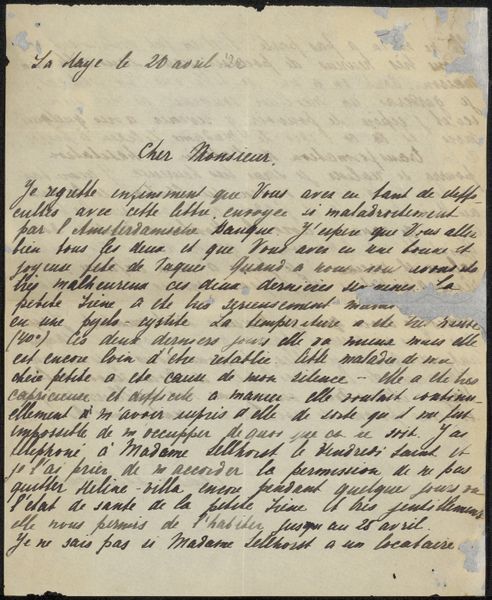 La Haye le 20 avril '23
Cher Monsieur,
Je regrette infiniment que Vous avez eu tant de diffi-
cultés avec cette lettre envoyée si maladroitement
par l'Amsterdamsche Banque. J'espère que Vous allez
bien tous les deux et que Vous avez eu une bonne et
joyeuse fête de Paques. Quand a nous nous avons été
très malheureux ces deux dernières semaines. La
petite Irène a été très serieusement
eu une pyelo-cystite. La température a été très
(40°) Les deux derniers jours elle va mieux mais elle
est encore loin d'être rétablie. Cette maladie de ma
chère petite a été cause de mon silence - Elle a été très
capricieuse et difficile a manier - elle voulait continu-
ellement à m'avoir auprès d'elle de sorte qu'il me fut
impossible de m'occupper de quoi que ce ne soit. J'ai
téléphoné à Madame Sellhorst le Vendredi Saint et
je l'ai prier de m'accorder la permission de ne pas
quitter Heline-villa encore pendant quelques jours vu
l'état de santé de la petite Irène et très gentillement
elle nous permis de l'habiter jusqu'au 25 avril.
Je ne sais pas si Madame Sellhorst a un locataire